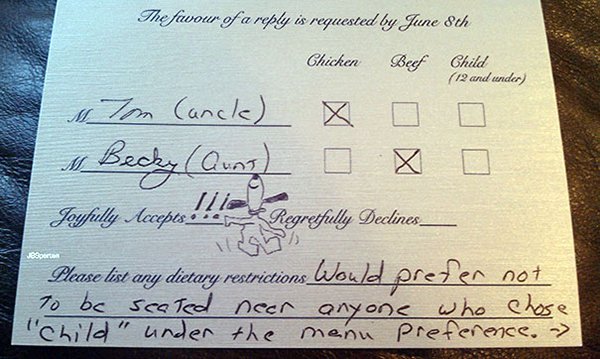 The favour of a reply is requested by June 8th
Chicken Beef Child
(12 and under)
M Tom (uncle)
M Becky (Aunt)
Joyfully Accepts !!! Regretfully Declines
JBSperuen
Please list any dietary restrictions Would prefer not
To be seated near anyone who chose
"child" under the menu preference. →